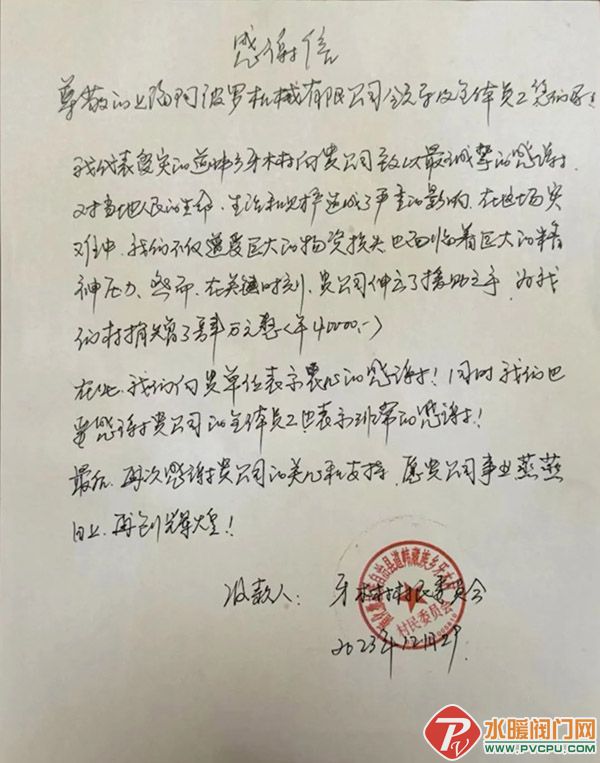 感谢信
尊敬的上海阿波罗机械有限公司全体员工您们好！
我代表受灾的道帏乡牙木村向贵公司致以最诚挚的感谢，
对当地人民的生命、生活和财产造成了严重的影响。在这场灾
难中，我们不仅遭受巨大的物资损失也面临着巨大的精
神压力。然而，在关键时刻，贵公司伸出了援助之手，为我
们村捐赠了肆万元整（¥40000.-）
在此，我们向贵单位表示衷心的感谢！同时我们也
要感谢贵公司的全体员工也表示非常的感谢！
最后，再次感谢贵公司的关心和支持，愿贵公司事业蒸蒸
日上，再创辉煌！
收款人：牙木村村民委员会
自治县道帏藏族乡牙木村
村民委员会
2023年12月29
水暖阀门网
WWW.PVCPU.COM